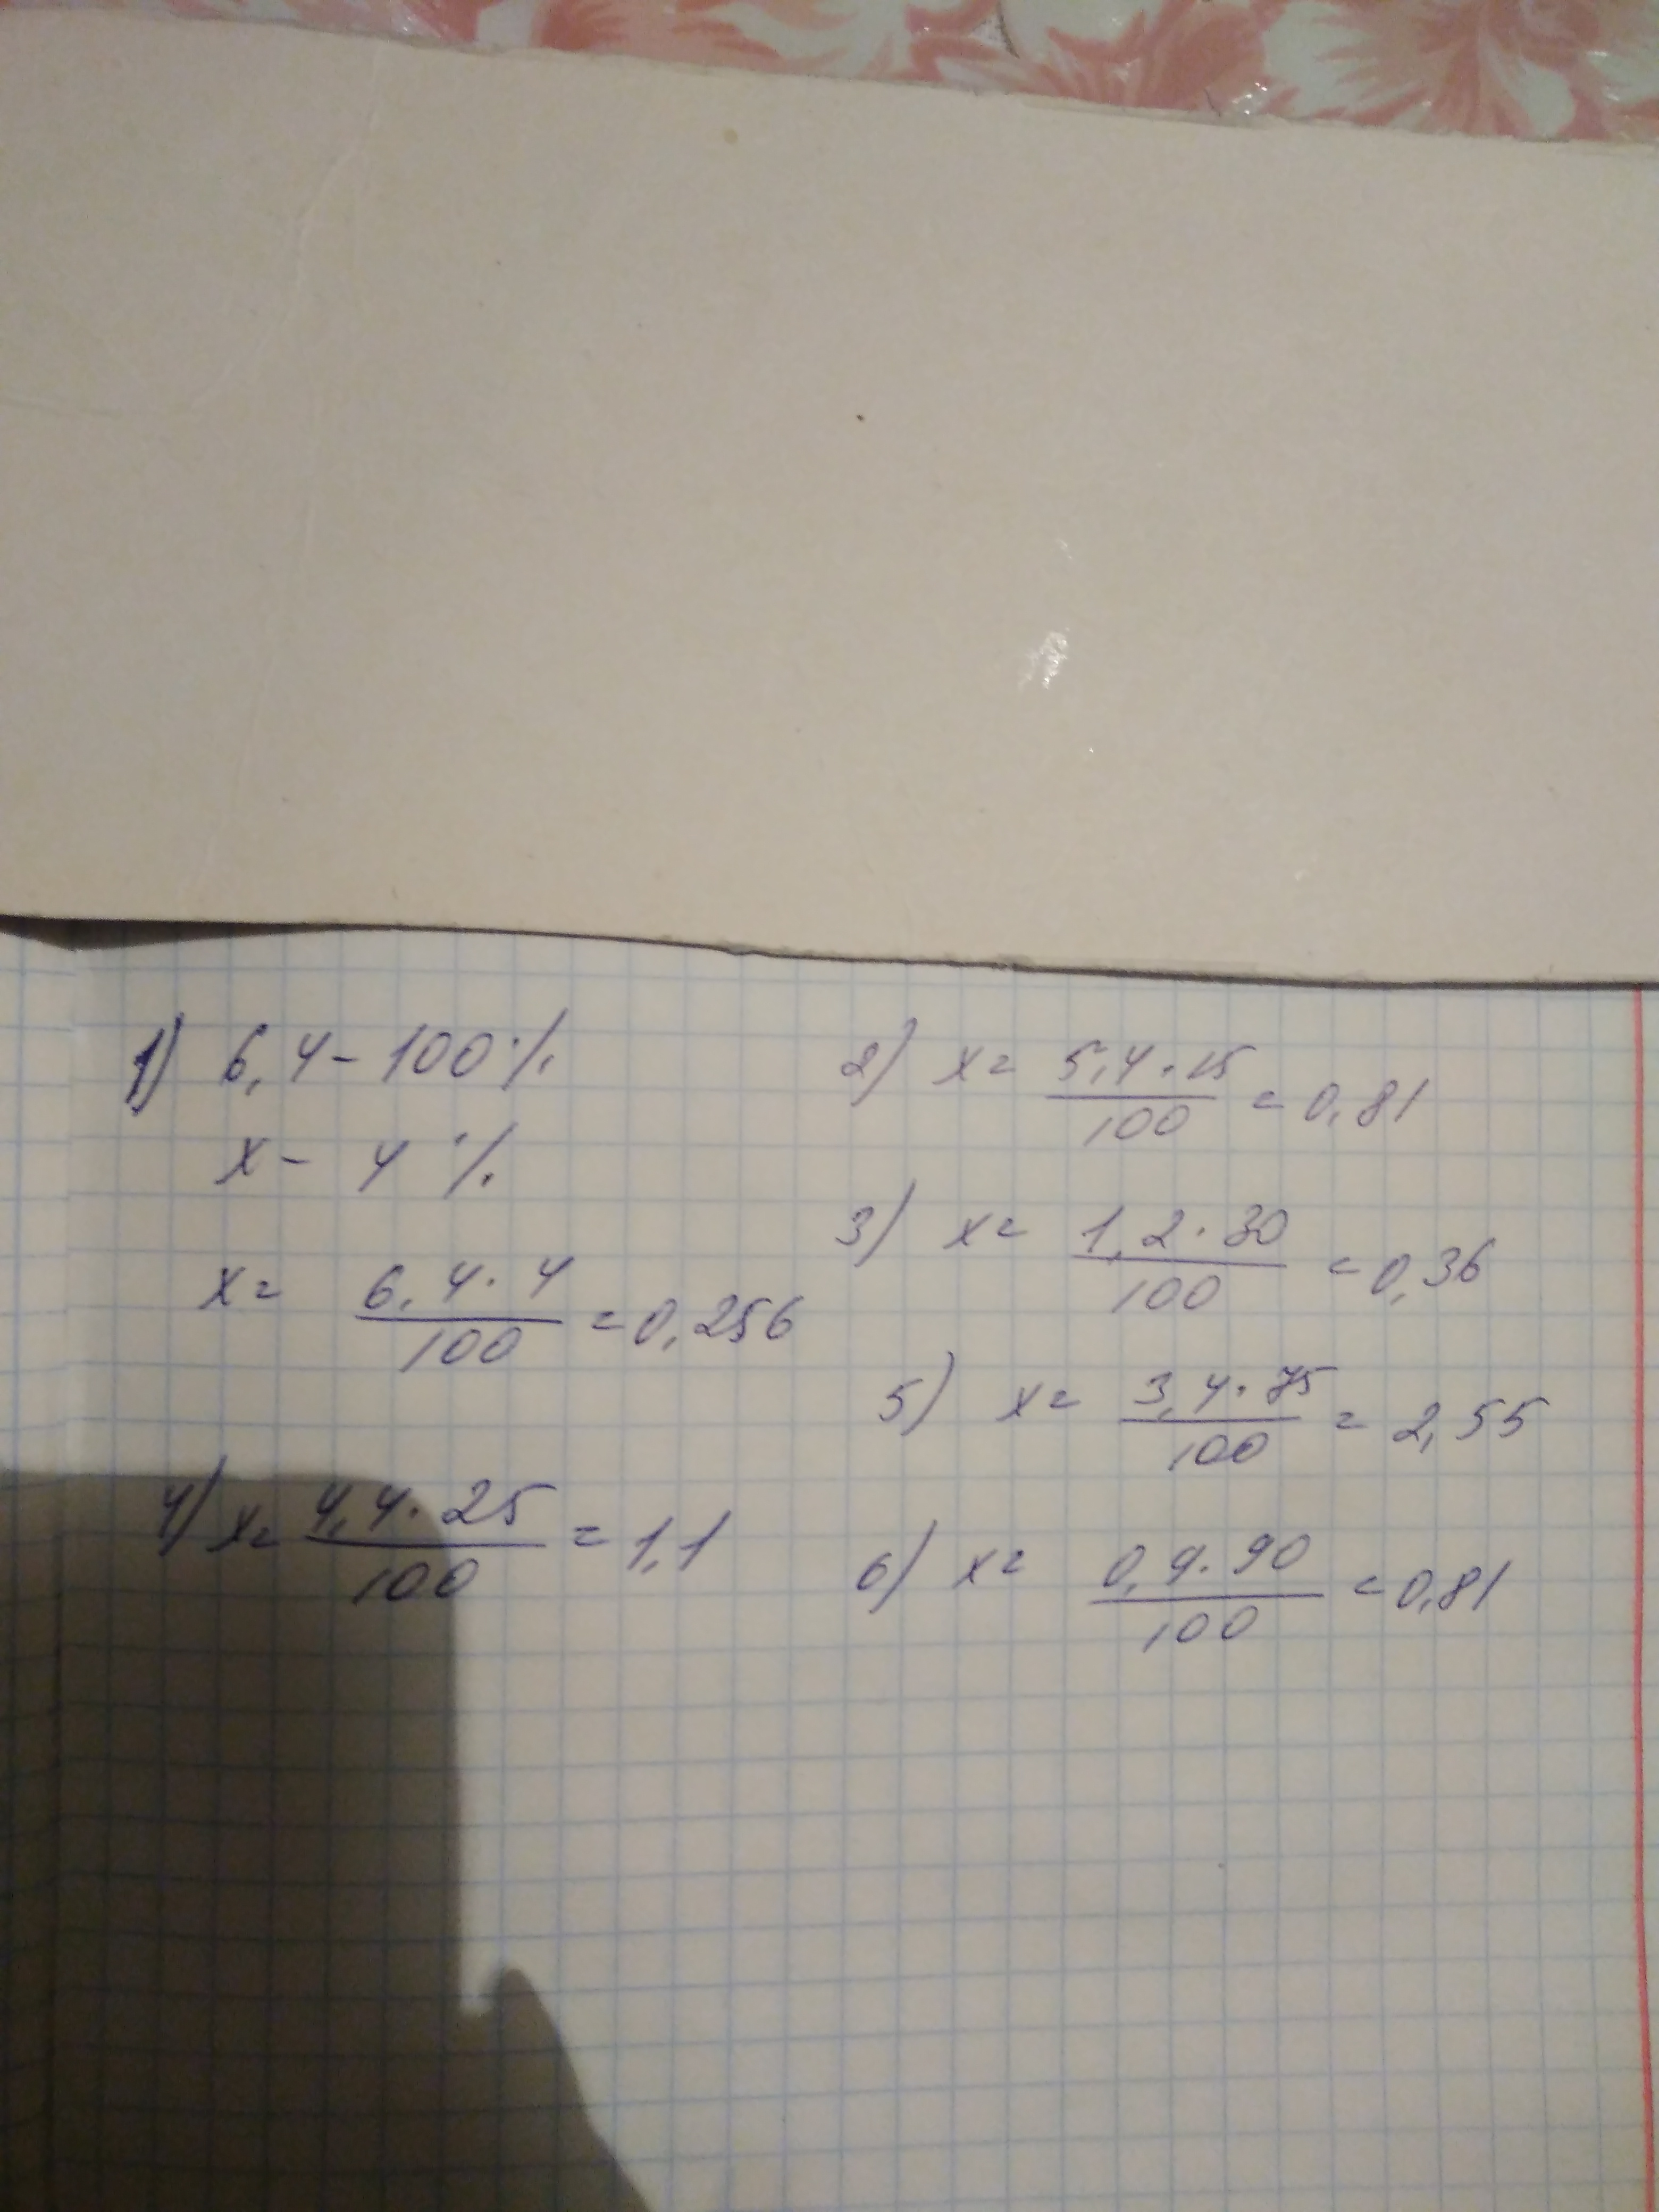 1) 6,4 - 100 %
x - 4 %
x = 6,4 · 4 / 100 = 0,256
4) x = 4,4 · 25 / 100 = 1,1
2) x = 5,4 · 15 / 100 = 0,81
3) x = 1,2 · 30 / 100 = 0,36
5) x = 3,4 · 75 / 100 = 2,55
6) x = 0,9 · 90 / 100 = 0,81